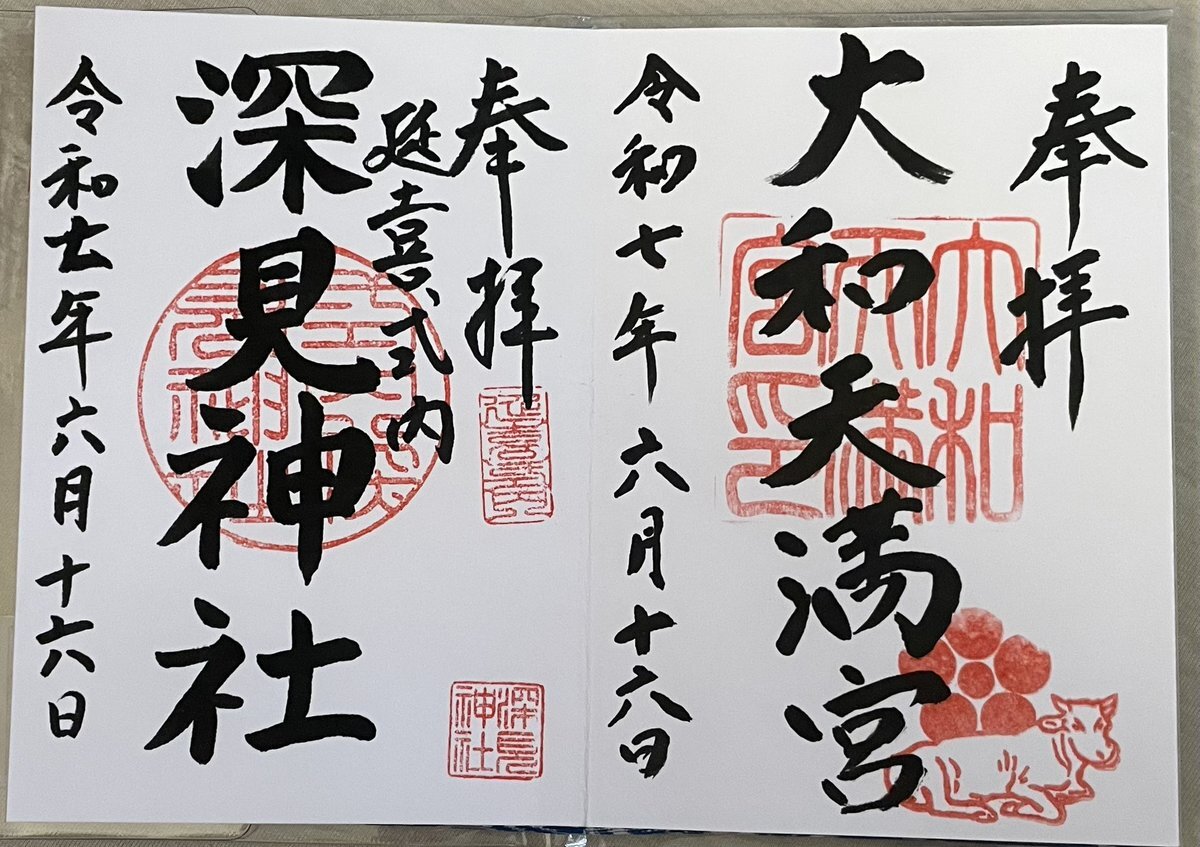 奉拝
大和天満宮
大和天満宮印
令和七年六月十六日
奉拝
延喜式内
延喜式内
深見神社
深見神社
令和七年六月十六日